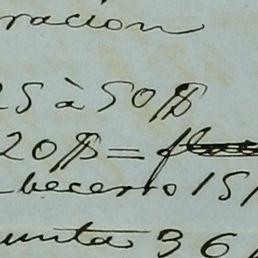 racion
25 à 50 $
20 $ =
becerro 15
unta 36